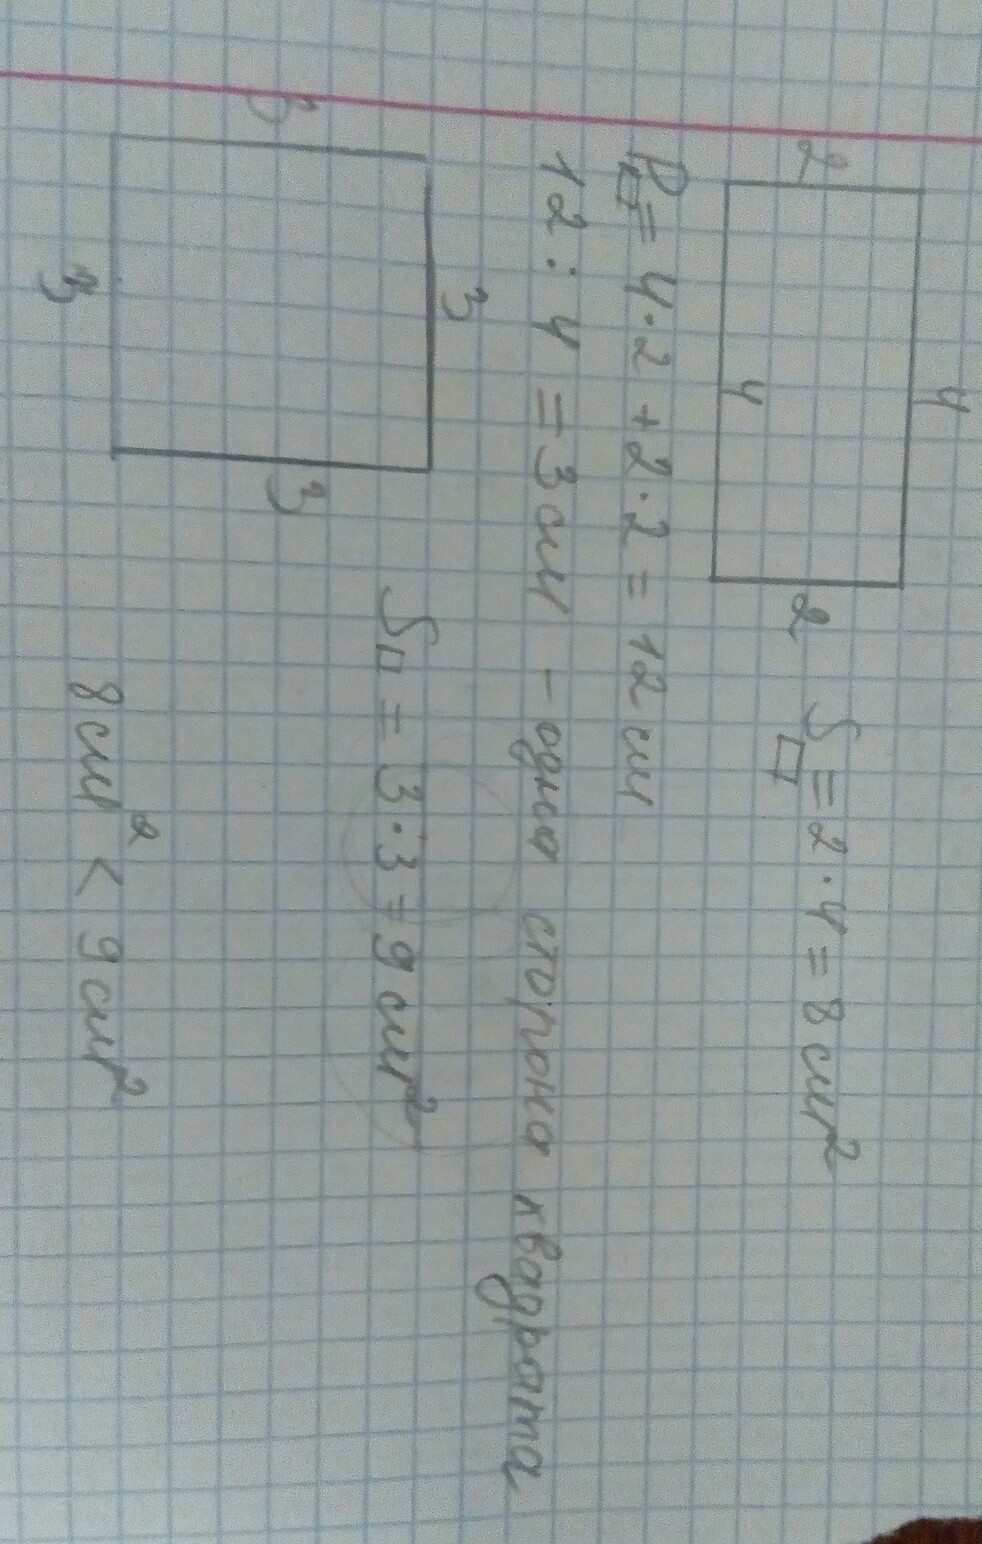 4
2
4
2
S▭ = 2 · 4 = 8 см²
P▭ = 4·2 + 2·2 = 12 см
12 : 4 = 3 см – одна сторона квадрата
3
3
3
3
S□ = 3·3 = 9 см²
8 см² < 9 см²